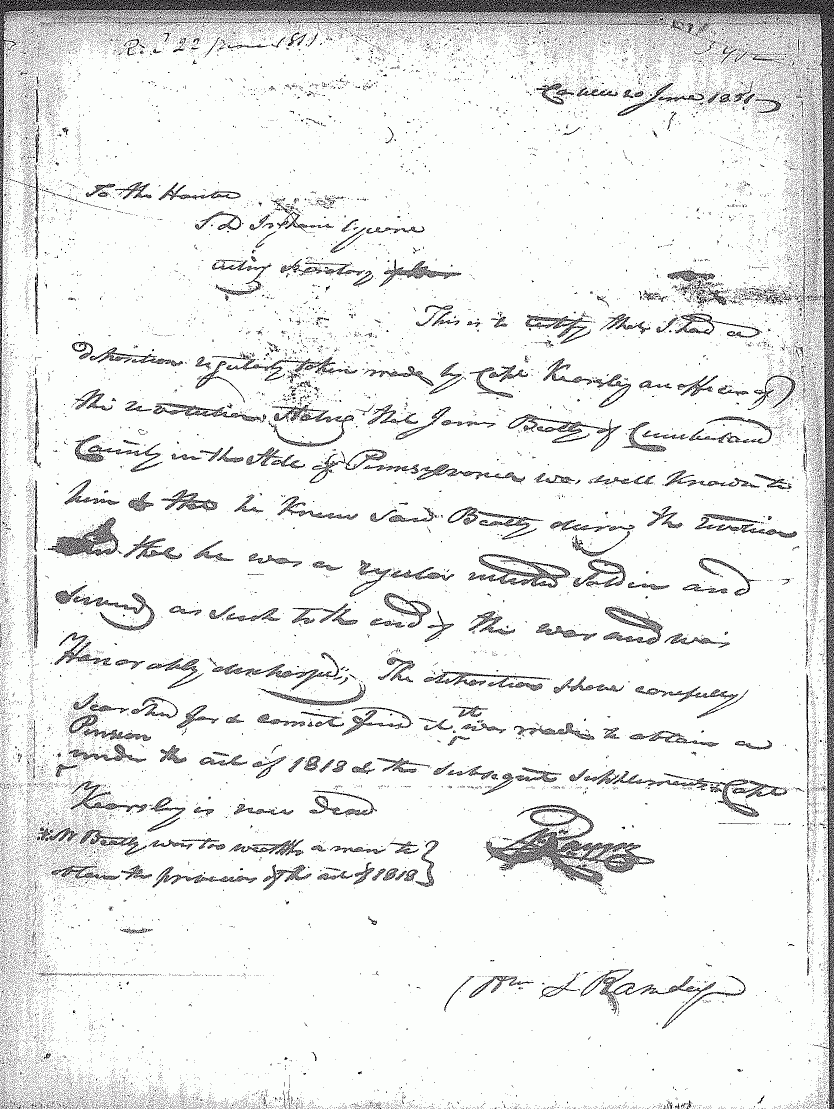 22 June 1831
20 June 1831
To the Honble
S. D. Ingham Esquire
acting Secretary of War
This is to testify that I had a
deposition regularly taken made by Capt Kearsley an officer of
the revolution Stating that James Beatty of Cumberland
County in the State of Pennsylvania was well known to
him & that he knew said Beatty during the revolution
and that he was a regular enlisted Soldier and
Served as such to the end of the war and was
Honorably discharged; The deposition I have carefully
Searched for & cannot find it was made to obtain a
Pension
under the act of 1818 & the subsequent supplements Capt
Kearsley is now dead
Mr Beatty was too wealthy a man to
obtain the provisions of the act of 1818
Wm S Ramsey